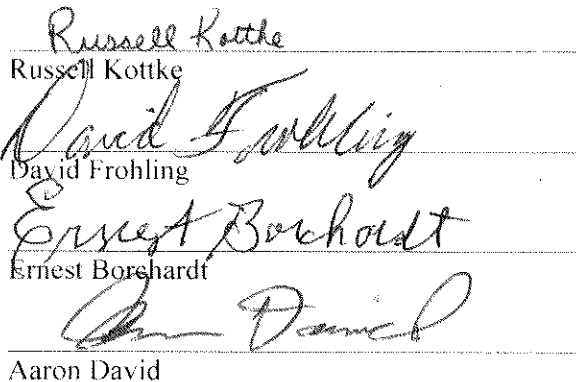 Russell Kottke
Russell Kottke
David Frohling
David Frohling
Ernest Borchardt
Ernest Borchardt
Aaron David
Aaron David